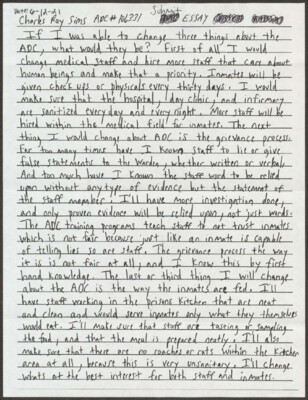 Charles Ray Sims ADC# ESSAY
If I was able to change three things about the
ADC, what would they be? First of all I would
change medical staff and hire more staff that care about
human beings and make that a priority. Inmates will be
given check ups or physicals every thirty days. I would
make sure that the hospital, day clinic, and infirmary
are sanitized every day and every night. More staff will be
hired within the medical field for inmates. The next
thing I would change about ADC is the grievance process.
Far too many times have I known staff to lie or give
false statements to the Warden, whether written or verbal.
And too much have I known the staff word to be relied
upon without any type of evidence but the statement of
the staff member. I'll have more investigation done,
and only proven evidence will be relied upon, not just words.
The ADC training programs teach staff to not trust inmates
which is not fair because just like an inmate is capable
of telling lies so are staff. The grievance process the way
it is is not fair at all, and I know this by first
hand knowledge. The last or third thing I will change
about the ADC is the way the inmates are fed. I'll
have staff working in the prisons Kitchen that are neat
and clean and would serve inmates only what they themselves
would eat. I'll make sure that staff are tasting or sampling
the food, and that the meal is prepared neatly. I'll also
make sure that there are no roaches or rats within the Kitchen
area at all, because this is very unsanitary. I'll change
whats at the best interest for both staff and inmates.